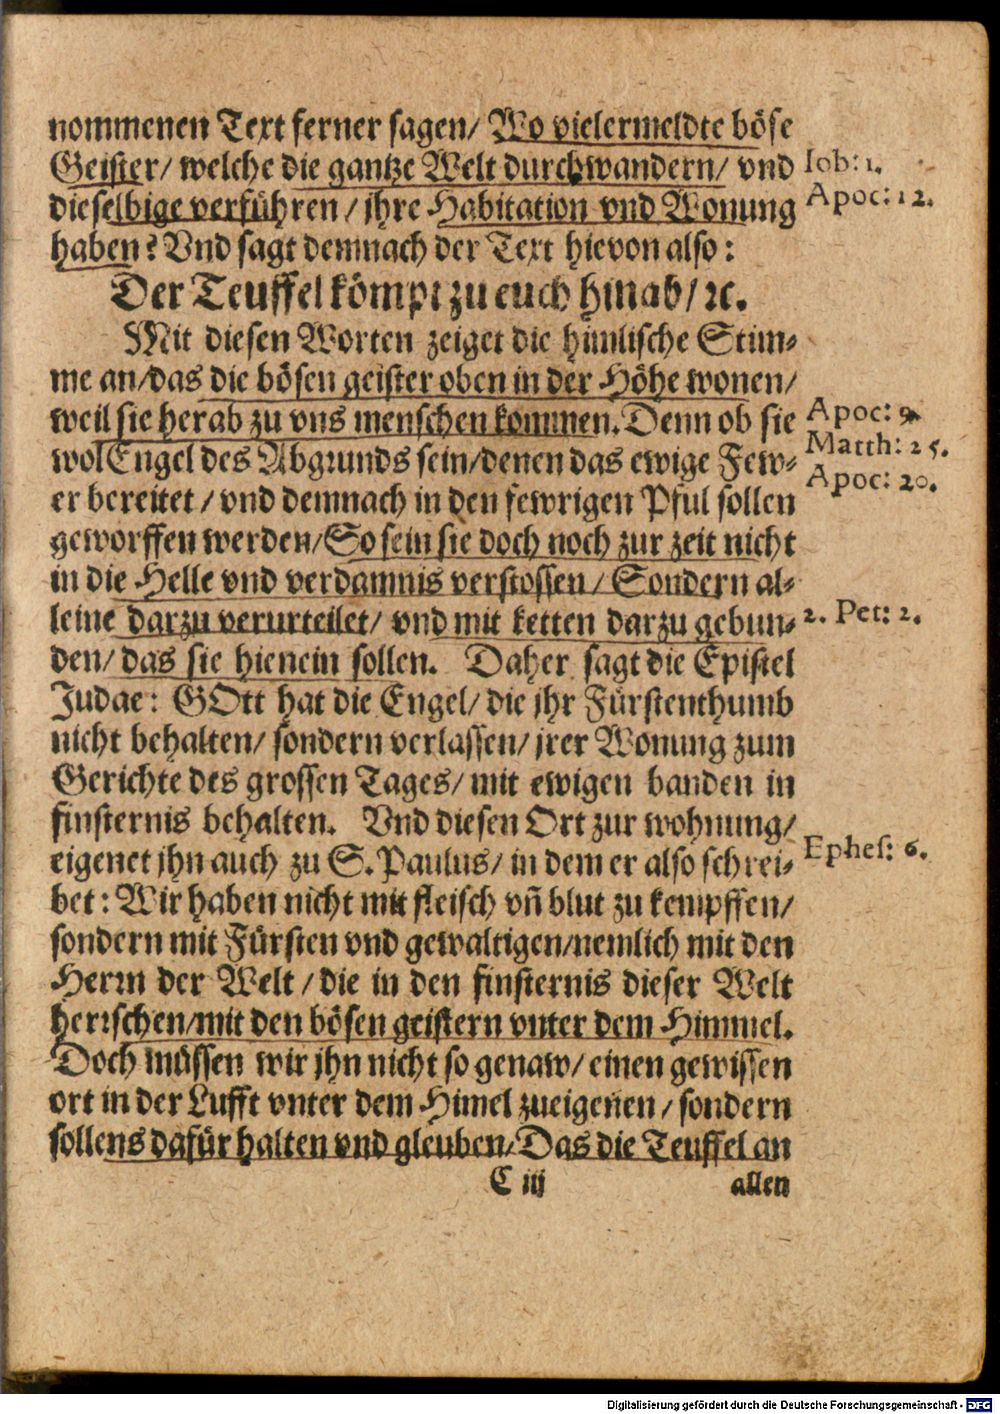 nommenen Text ferner sagen/ Wo vielermeldte böse
Geister/ welche die gantze Welt durchwandern/ vnd
Iob: 1.
dieselbige verführen/ jhre Habitation vnd Wonung
Apoc: 12.
haben? Vnd sagt demnach der Text hievon also:
Der Teuffel kömpt zu euch hinab/ ꝛc.
Mit diesen Worten zeiget die himlische Stim-
me an/das die bösen geister oben in der Höhe wonen/
weil sie herab zu vns menschen kommen. Denn ob sie
Apoc: 9.
wol Engel des Abgrunds sein/denen das ewige Few-
Matth: 25.
er bereitet/ vnd demnach in den fewrigen Pful sollen
Apoc: 20.
geworffen werden/So sein sie doch noch zur zeit nicht
in die Helle vnd verdamnis verstossen/ Sondern al-
leine darzu verurteilet/ vnd mit ketten darzu gebun-
2. Pet: 2.
den/ das sie hienein sollen. Daher sagt die Epistel
Judae: GOtt hat die Engel/ die jhr Fürstenthumb
nicht behalten/ sondern verlassen/ jrer Wonung zum
Gerichte des grossen Tages/ mit ewigen banden in
finsternis behalten. Vnd diesen Ort zur wohnung/
eigenet jhn auch zu S. Paulus/ in dem er also schrei-
Ephes: 6.
bet: Wir haben nicht mit fleisch vñ blut zu kempffen/
sondern mit Fürsten vnd gewaltigen/nemlich mit den
Herꝛn der Welt/ die in den finsternis dieser Welt
herꝛschen/mit den bösen geistern vnter dem Himmel.
Doch müssen wir jhn nicht so genaw/ einen gewissen
ort in der Lufft vnter dem Himel zueigenen/ sondern
sollens dafür halten vnd gleuben/Das die Teuffel an
C iij
allen
Digitalisierung gefördert durch die Deutsche Forschungsgemeinschaft - DFG